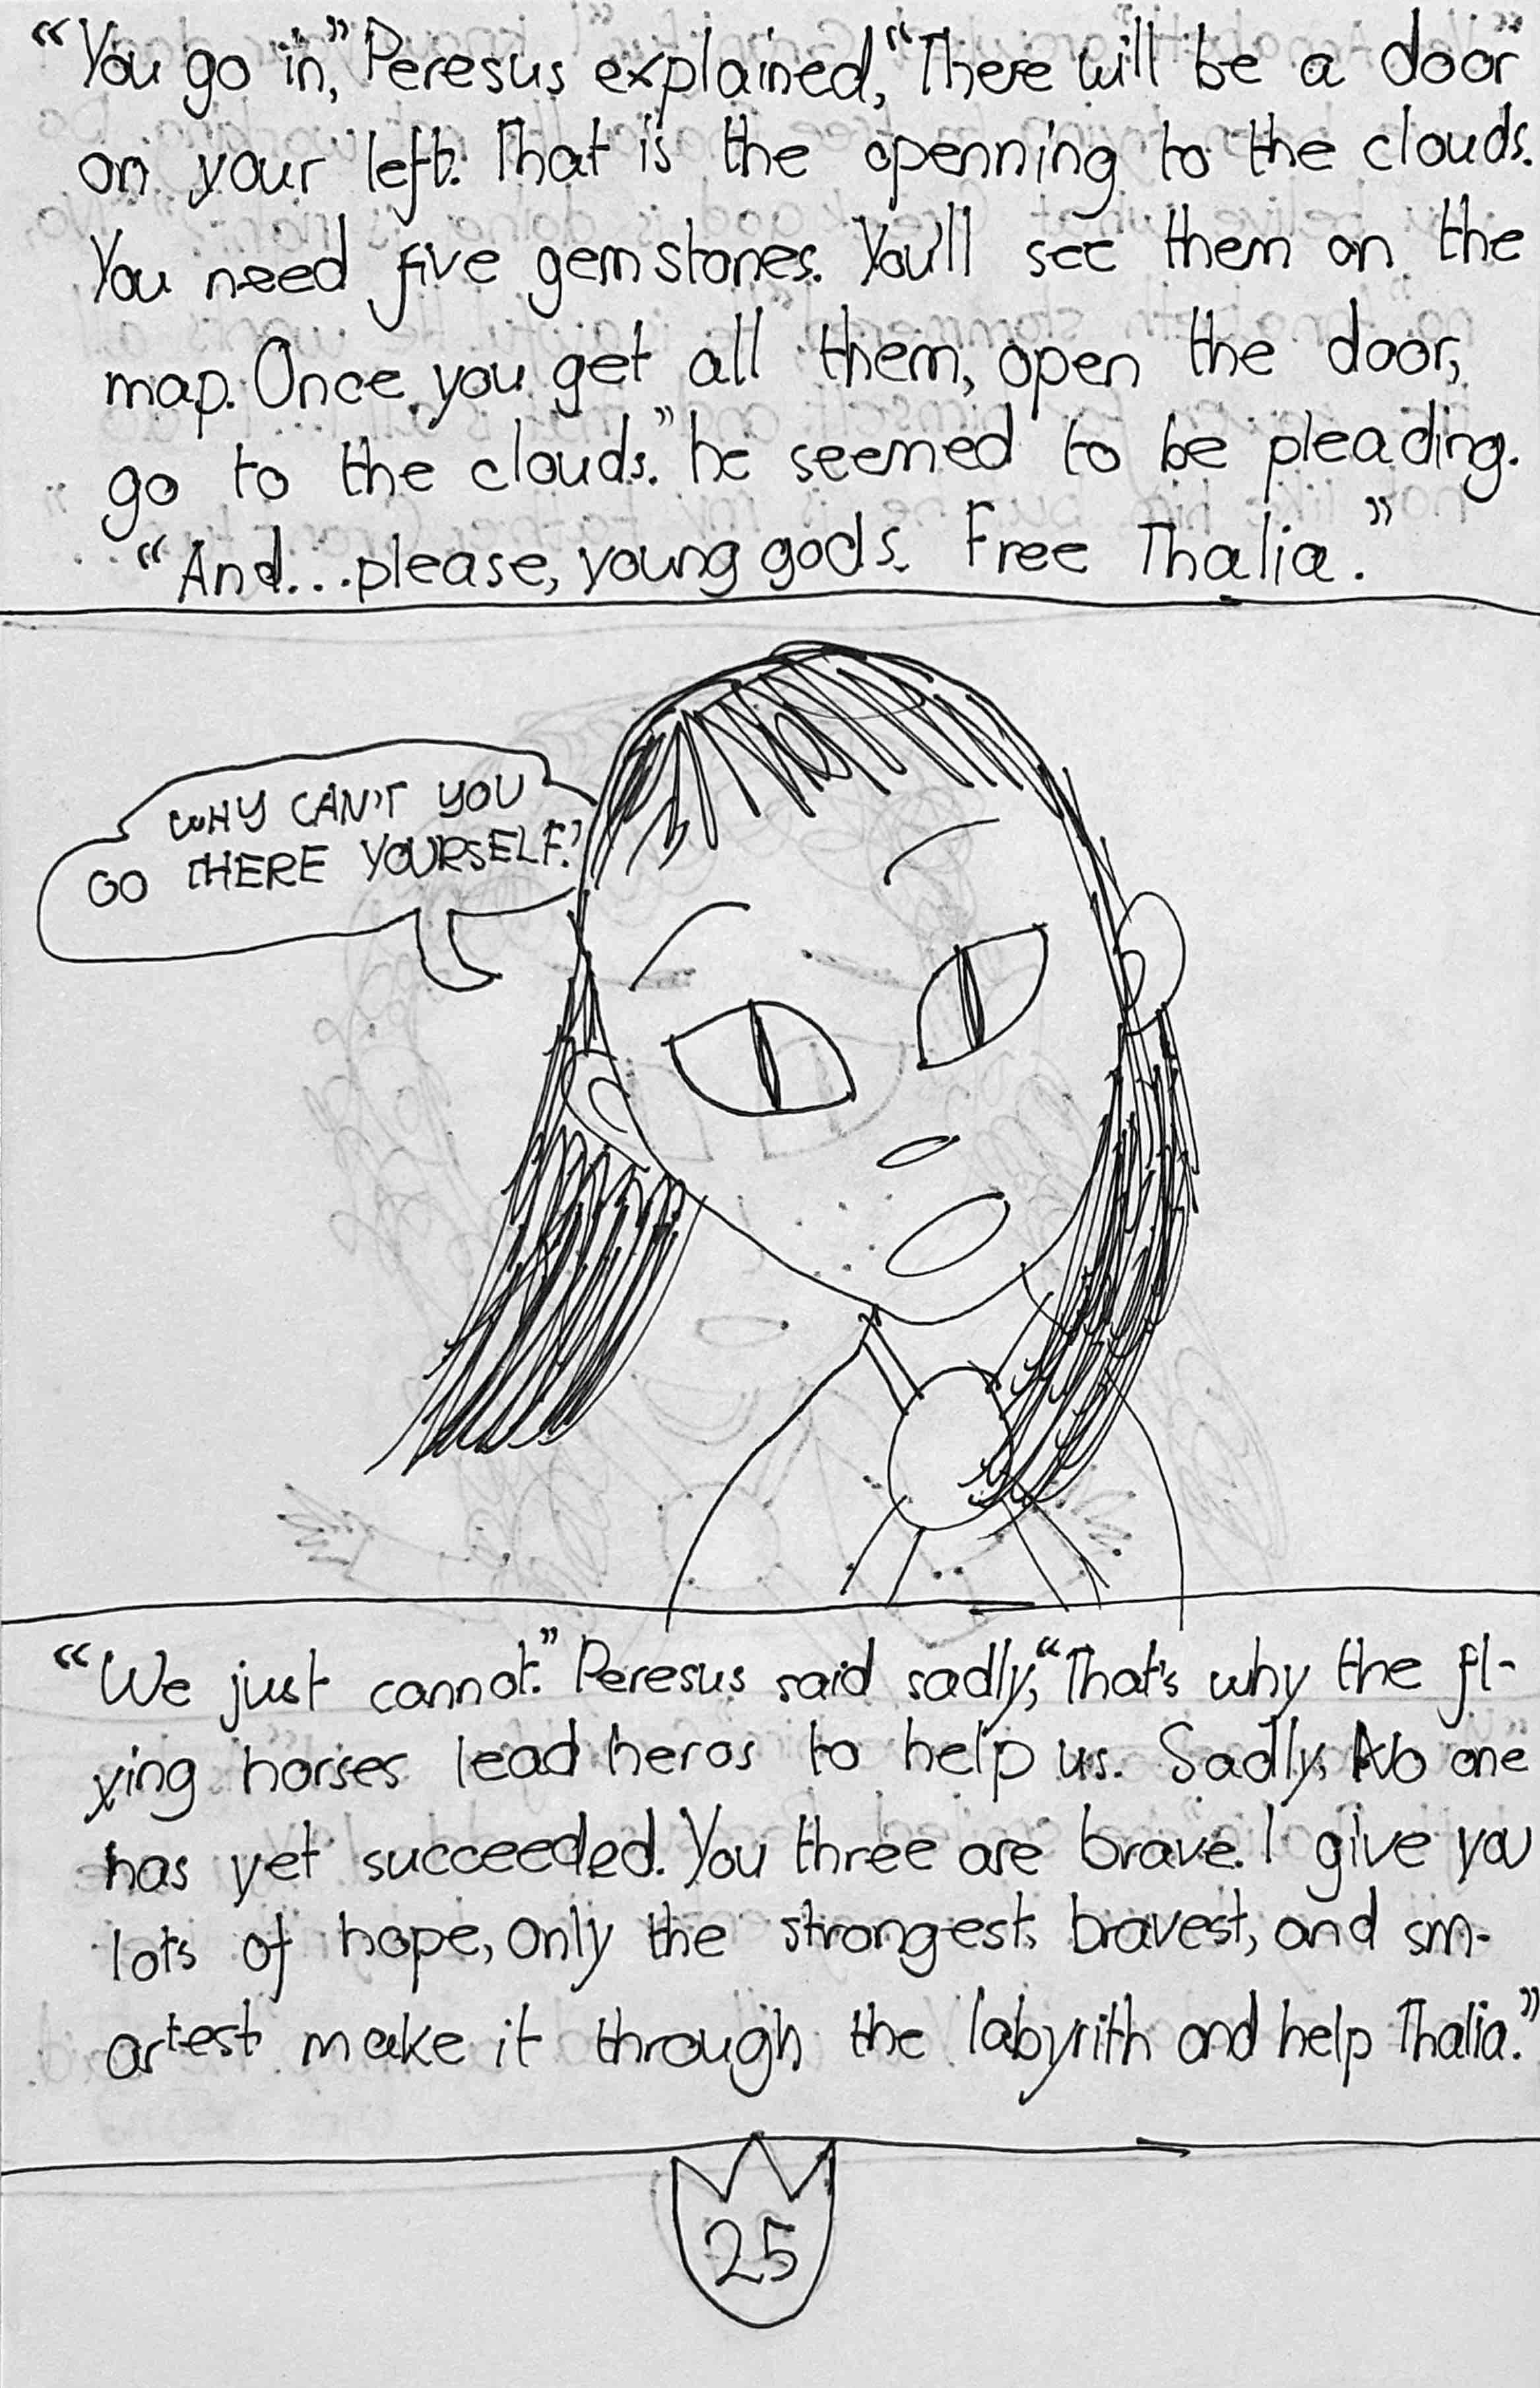 “You go in,” Peresus explained, “There will be a door
on your left. That is the openning to the clouds.
You need five gemstones. You'll see them on the
map. Once you get all them, open the door,
go to the clouds.” he seemed to be pleading.
“And...please, young gods. Free Thalia.”
WHY CAN'T YOU
GO THERE YOURSELF?
“We just cannot.” Peresus said sadly, “That's why the fl-
ying horses lead heros to help us. Sadly, No one
has yet succeeded. You three are brave. I give you
lots of hope, Only the strongest, bravest, and sm-
artest make it through the labyrith and help Thalia.”
25